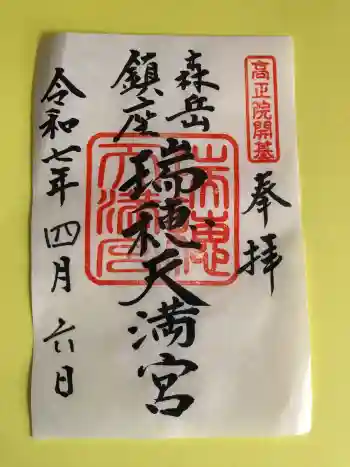 高正院開基
奉拝
森岳
鎮座
瑞穂天満宮
令和七年四月六日